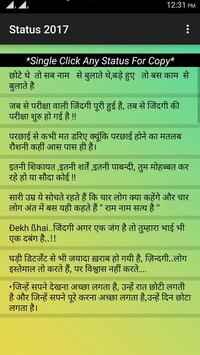 12:31 PM
Status 2017
*Single Click Any Status For Copy*
छोटे थे तो सब नाम से बुलाते थे,बड़े हुए तो बस काम से
बुलाते है
जब से परीक्षा वाली जिंदगी पूरी हुई है, तब से जिंदगी की
परीक्षा शुरु हो गई है
परछाई से कभी मत डरिए क्योंकि परछाई होने का मतलब
रौशनी कहीं आस पास ही है।
इतनी शिकायत ,इतनी शर्ते ,इतनी पाबन्दी, तुम मोहब्बत कर
रहे हो या सौदा कोई !!
सारी उम्र ये सोचते रहते हैं कि चार लोग क्या कहेंगे और चार
लोग अंत में बस यही कहते हैं “ राम नाम सत्य है ”
Đekh ßhai..जिंदगी अगर एक जंग है तो तुम्हारा भाई भी
एक दबंग है..!!
घड़ी डिटर्जेंट से भी जयादा ख़राब है, ज़िन्दगी..लोग
इस्तेमाल तो करते हैं, पर विश्वास नहीं करते....
•जिन्हें सपने देखना अच्छा लगता है, उन्हें रात छोटी लगती
है•और जिन्हें सपने पूरे करना अच्छा लगता है,उन्हें दिन छोटा
लगता है।